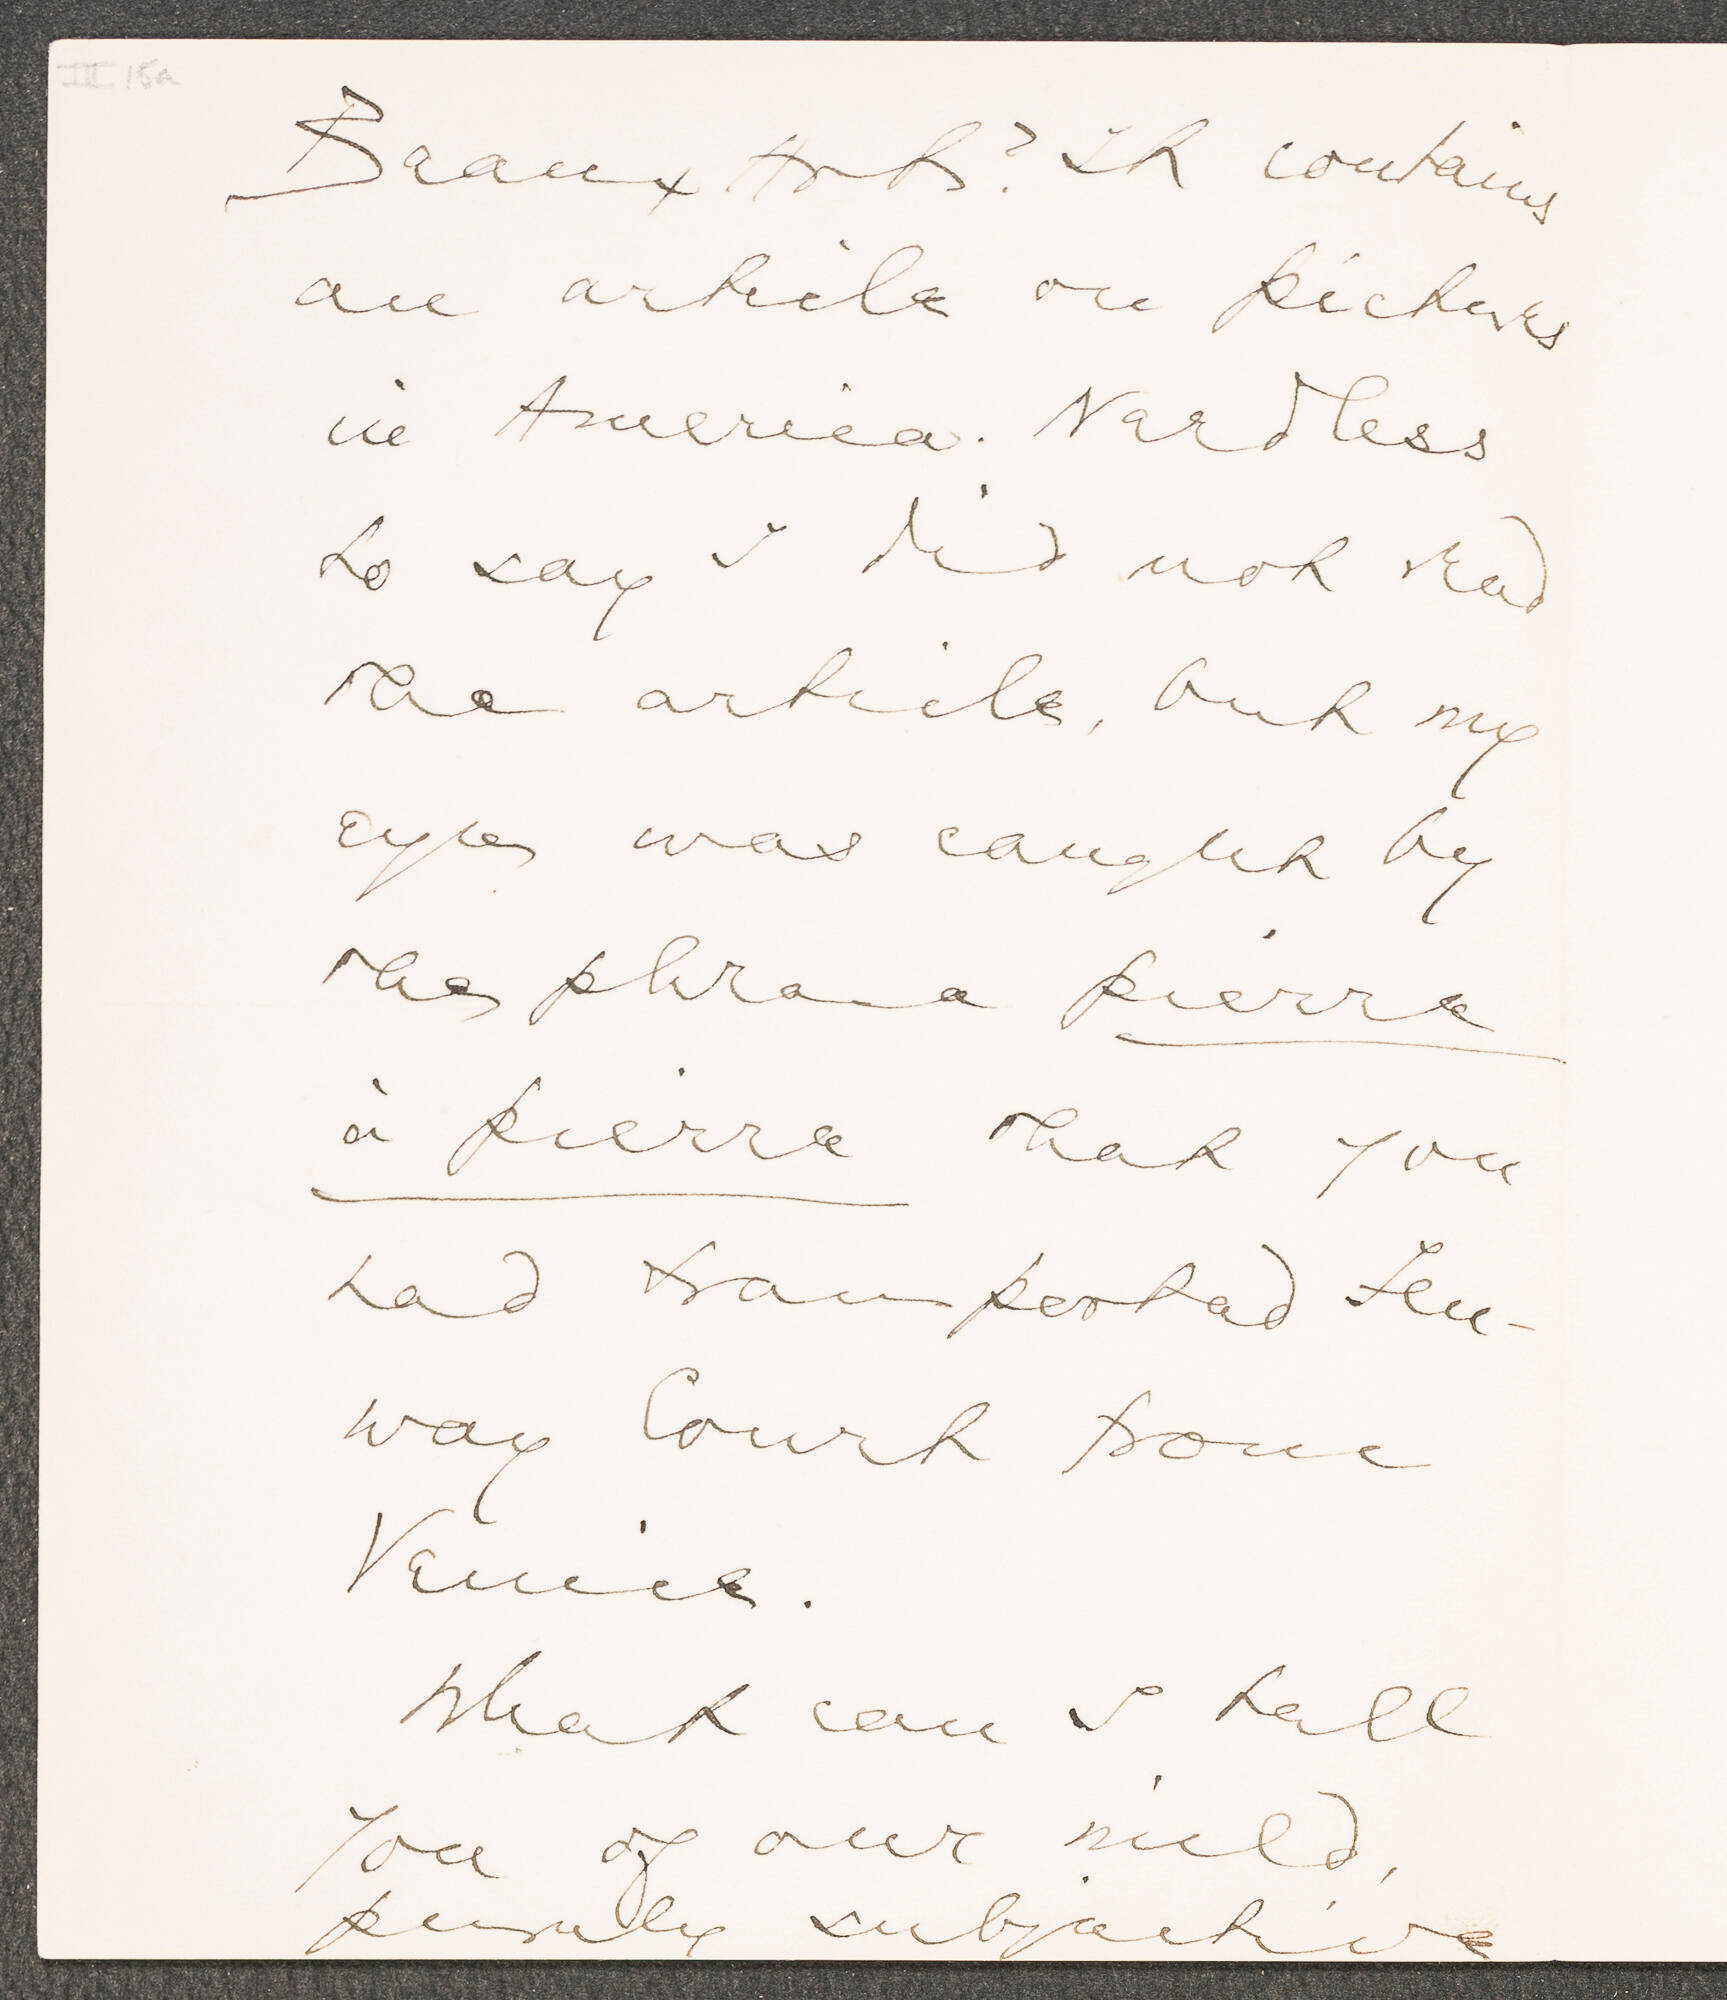 III 15a
Beaux Arts? It contains
an article on pictures
in America. Needless
to say I did not read
the article, but my
eyes was caught by
the phrase pierre
à pierre that you
had transported Fen-
way Court from
Venice.
What can I tell
you of our mild,
purely subjective